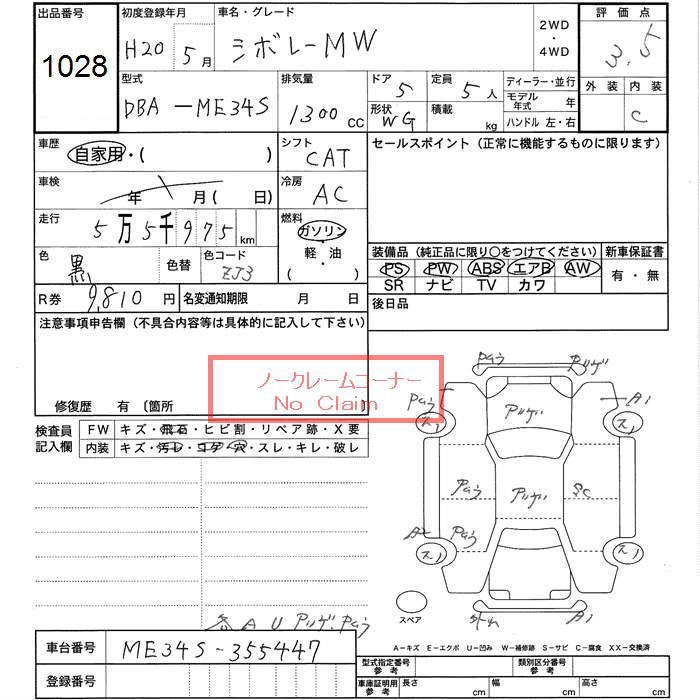 出品番号
1028
初度登録年月
H20 5月
車名・グレード
シボレーMW
2WD
・
4WD
評価点
3.5
型式
DBA-ME34S
排気量
1300cc
ドア 5
形状 WG
定員 5人
積載 kg
ディーラー・並行
モデル年式 年
ハンドル 左・右
外装 内装
C
車歴
自家用・( )
シフト
CAT
セールスポイント(正常に機能するものに限ります)
車検
年 月( 日)
冷房
AC
走行
5万5千975km
燃料
ガソリン
・
軽・油
( )
色
黒
色替
色コード
ZJ3
装備品(純正品に限り○をつけてください)
新車保証書
PS PW ABS エアB AW
SR ナビ TV カワ
有・無
R券 9,810円
名変通知期限 月 日
後日品
注意事項申告欄(不具合内容等は具体的に記入して下さい)
ノークレームコーナー
No Claim
修復歴 有〔箇所 〕
検査員記入欄
FW キズ・飛石・ヒビ割・リペア跡・X要
内装 キズ・汚レ・コゲ・穴・スレ・キレ・破レ
Paう
Pあう
A1
スレ
スペア
各AU
車台番号 ME34S-355447
登録番号
A-キズ E-エクボ U-凹み W-補修跡 S-サビ C-腐食 XX-交換済
型式指定番号 参考
類別区分番号 参考
車庫証明用 参考
長さ cm
幅 cm
高さ cm